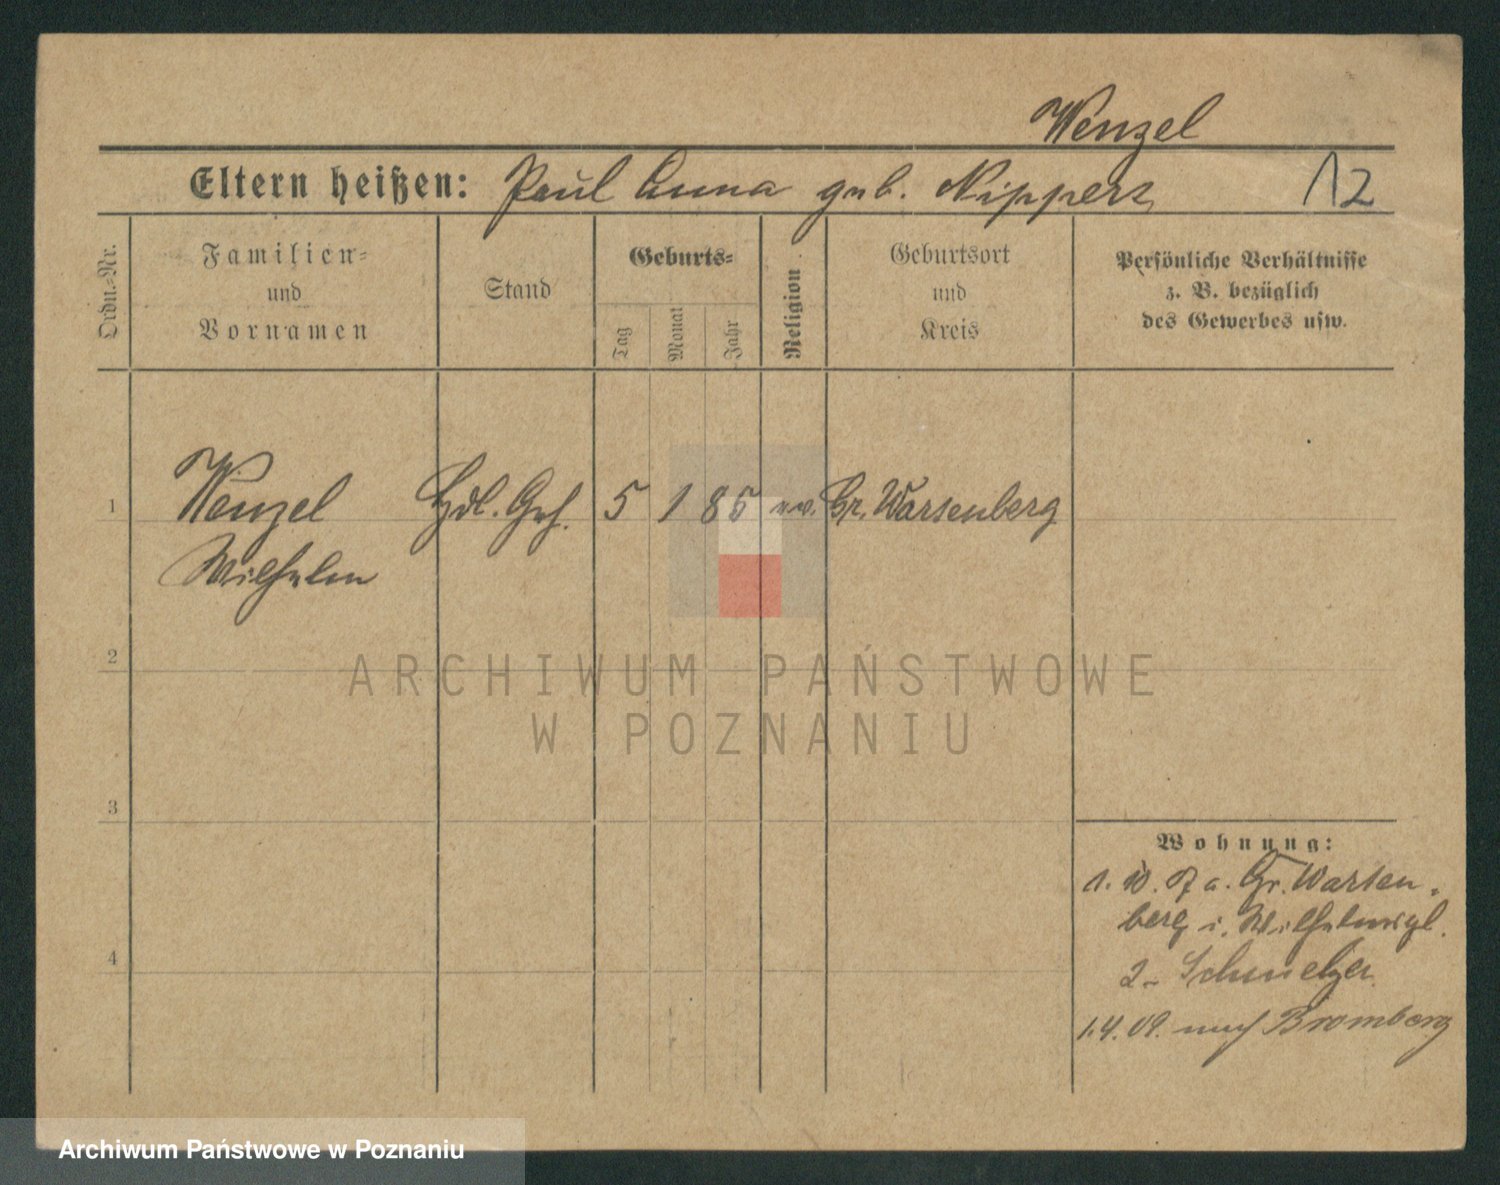 Wenzel
Eltern heißen: Paul Anna geb. Nippert
12
Ordn.-Nr.
Familien-
und
Vornamen
Stand
Geburts-
Tag
Monat
Jahr
Religion
Geburtsort
und
Kreis
Persönliche Verhältnisse
z. B. bezüglich
des Gewerbes usw.
1
Wenzel Hdl. Geh. 5 1 85 ev. Gr. Wartenberg
Wilhelm
2
3
4
Wohnung:
1. 10. 7 a. Gr. Warten-
berg i. Wilhelmspl.
2- Schmelzer
1.4.09. nach Bromberg
ARCHIWUM PAŃSTWOWE
W POZNANIU
Archiwum Państwowe w Poznaniu